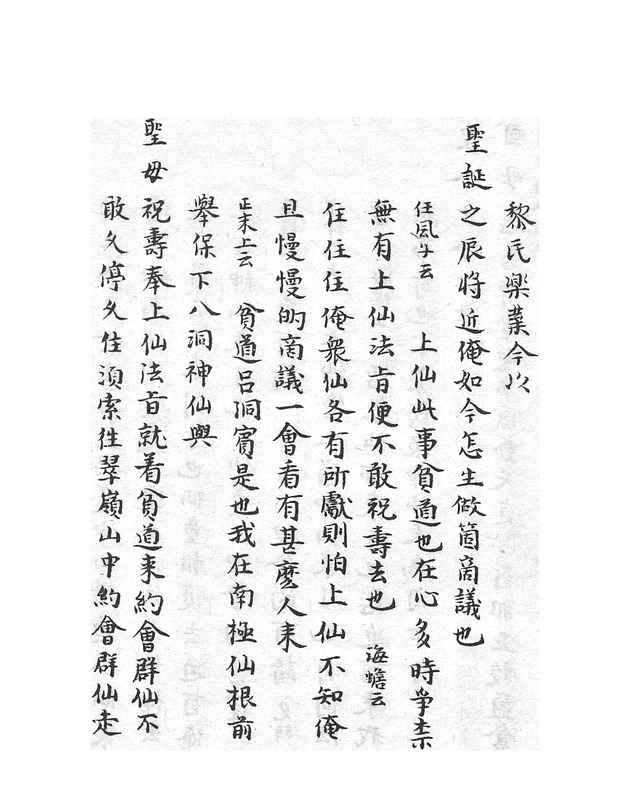 黎民樂業今以
聖誕之辰将近俺如今怎生做箇商議也
任風子云 上仙此事貧道也在心多時争柰
無有上仙法旨便不敢祝壽去也 海蟾云
住住住俺衆仙各有所獻則怕上仙不知俺
且慢慢的商議一會看有甚麽人来
正末上云 貧道吕洞賔是也我在南極仙根前
舉保下八洞神仙與
聖母祝壽奉上仙法旨就着貧道来約會群仙不
敢久停久住須索徃翠嶺山中約會群仙走